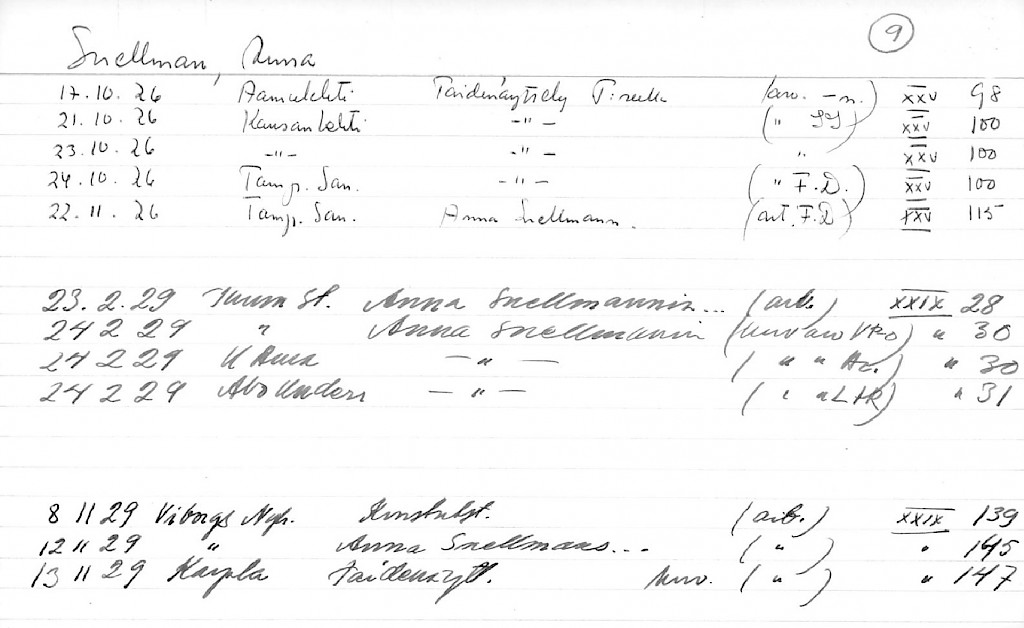 9
Snellman, Anna
17.10.26 Aamulehti Taidenäyttely T:reella (arv. -n.) XXV 98
21.10.26 Kansan Lehti -"- (" SS) XXV 100
23.10.26 -"- -"- " XXV 100
24.10.26 Tamp. San. -"- (" F.D.) XXV 100
22.11.26 Tamp. San. Anna Snellmann. (art. F.D) XXV 115
23.2.29 St. Anna Snellmannin... XXIX 28
24 2 29 " Anna Snellmannin " 30
24 2 29 U Aura -"- (" " ) " 30
24 2 29 Åbo Underr -"- " 31
8 11 29 Viborgs Nyh. Konstutst. XXIX 139
12 11 29 " Anna Snellmans... (") " 145
13 11 29 Karjala Taidenäytt. (") " 147